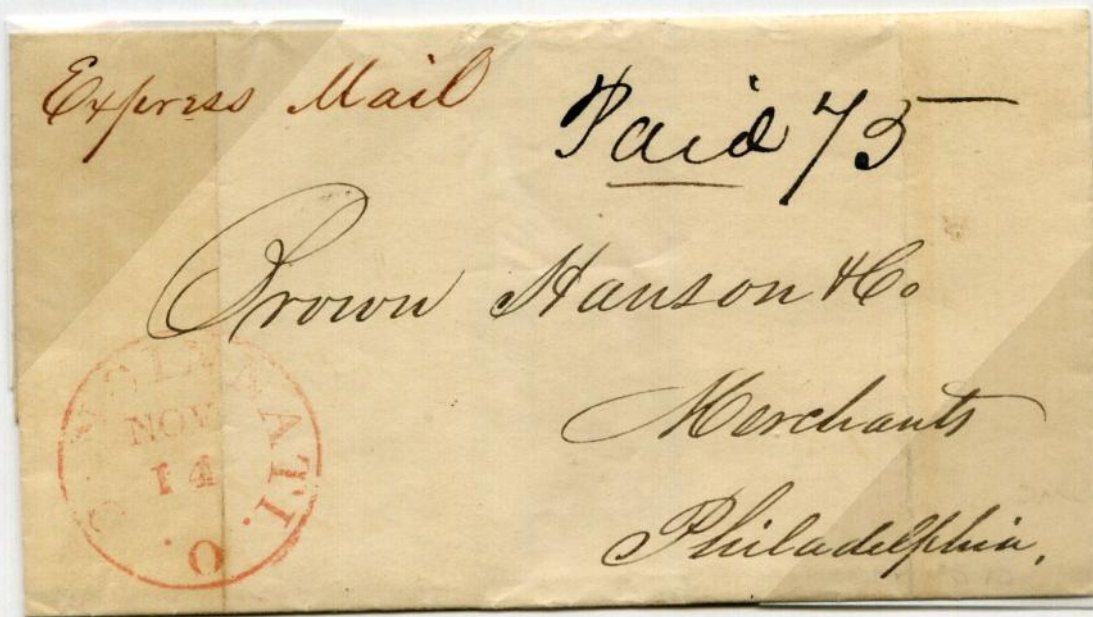 Express Mail
Paid 75
Brown Hanson & Co
Merchants
Philadelphia,
CINCINNATI. O.
NOV
14